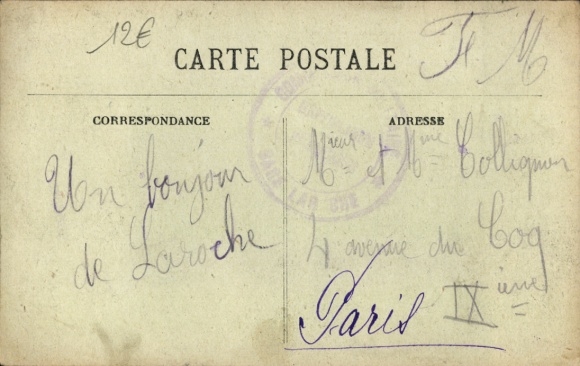 12€
CARTE POSTALE
FM
CORRESPONDANCE
ADRESSE
Un bonjour
de Laroche
Mieur et Mme Collignon
4 avenue du Coq
Paris IX ième